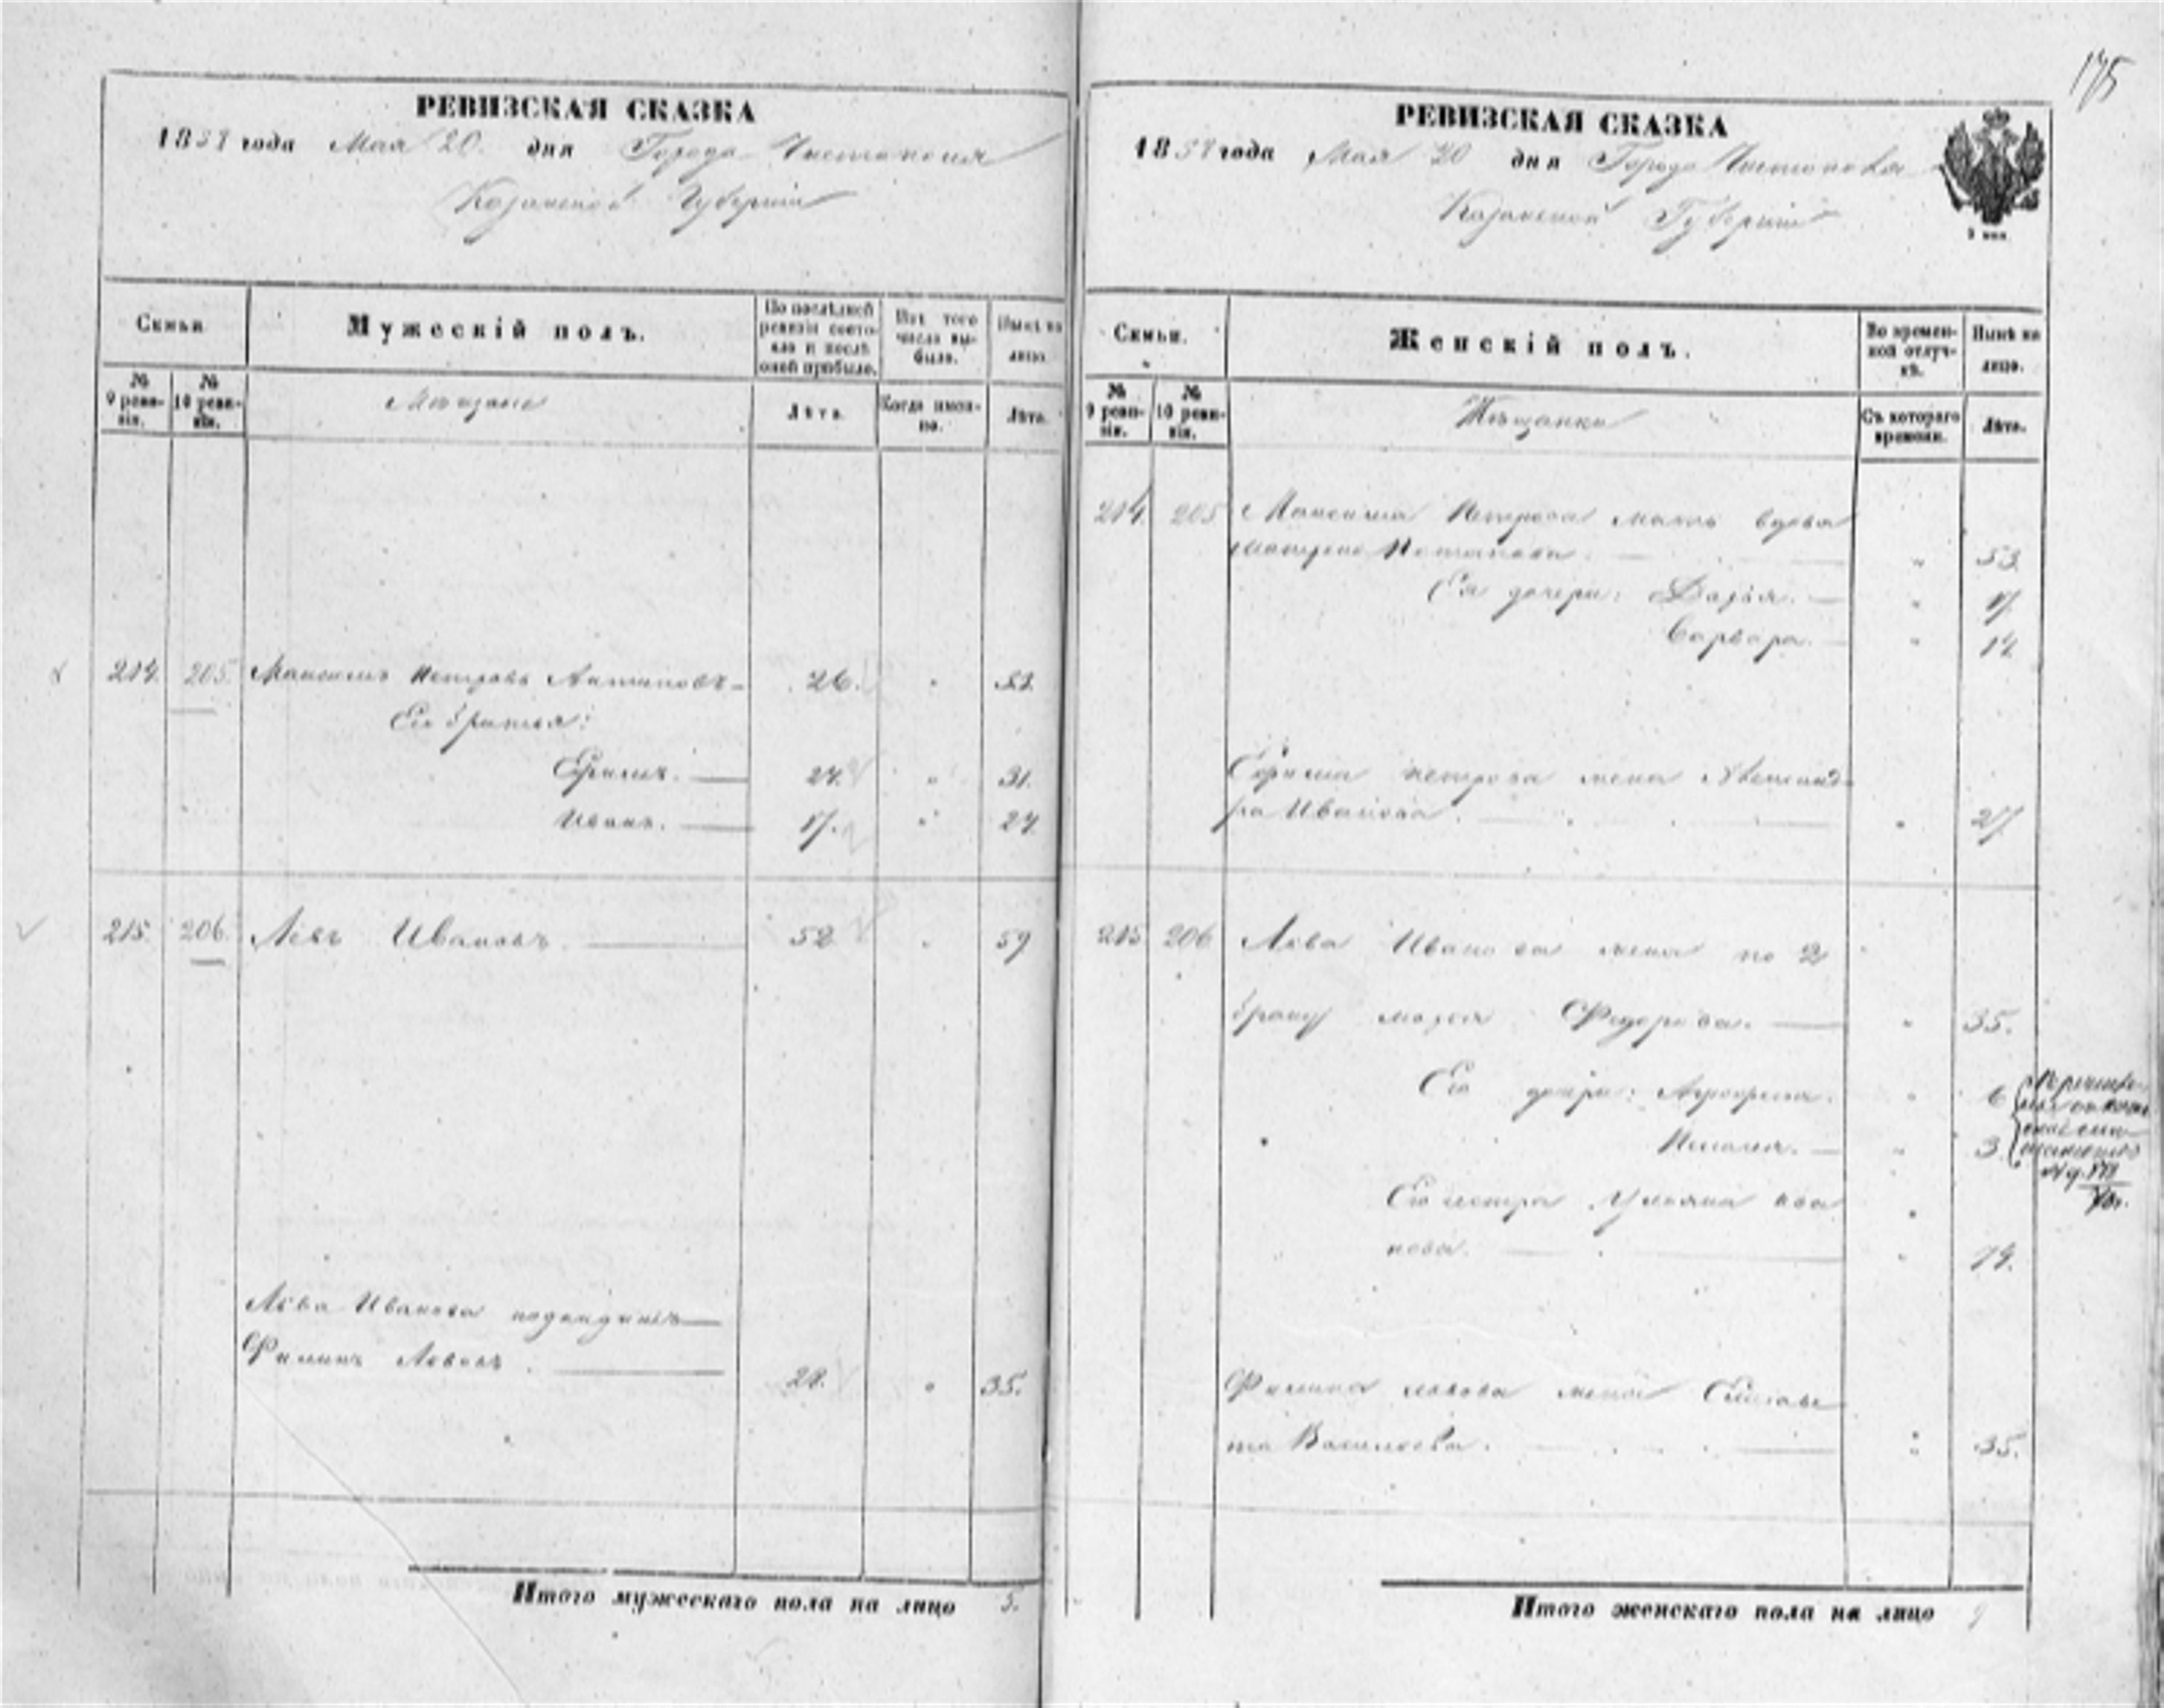 175
РЕВИЗСКАЯ СКАЗКА
1858 года Мая 20. дня Города Чистополя
Казанской Губерніи
Семьи.
Мужескій полъ.
По послѣдней ревизіи состояло и послѣ оной прибыло.
Изъ того числа выбыло.
Нынѣ на лицо.
№ 9 ревизіи.
№ 10 ревизіи.
Мѣщане
Лѣта.
Когда именно.
Лѣта.
214. 205. Максимъ Петровъ Антиповъ 26. 33.
Его братья:
Ефимъ. 24. 31.
Иванъ. 17. 24
215. 206. Левъ Ивановъ 52 59
Лева Иванова подкидышъ
Филипъ Львовъ 28. 35.
Итого мужескаго пола на лицо 5.
РЕВИЗСКАЯ СКАЗКА
1858 года Мая 20 дня Города Чистополя
Казанской Губерніи
Семьи.
Женскій полъ.
Во временной отлучкѣ.
Нынѣ на лицо.
№ 9 ревизіи.
№ 10 ревизіи.
Мѣщанки
Съ котораго времени.
Лѣта.
214. 205 Максима Петрова мать вдова
Матрена 53.
Ея дочери: Дарья. 17.
Варвара. 14
Ефима Петрова жена Александ-
ра Иванова. 27.
215 206 Лева Иванова жена по 2
браку Марья Федорова. 35.
Его дочери: 6
3
Его сестра Ульяна Ива
нова. 74.
Филипа Львова жена Елизаве
та Васильева. 35.
Итого женскаго пола на лицо 9